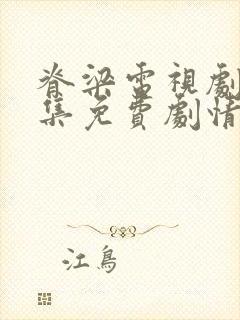 脊梁電視劇
集免費劇情
江鳥